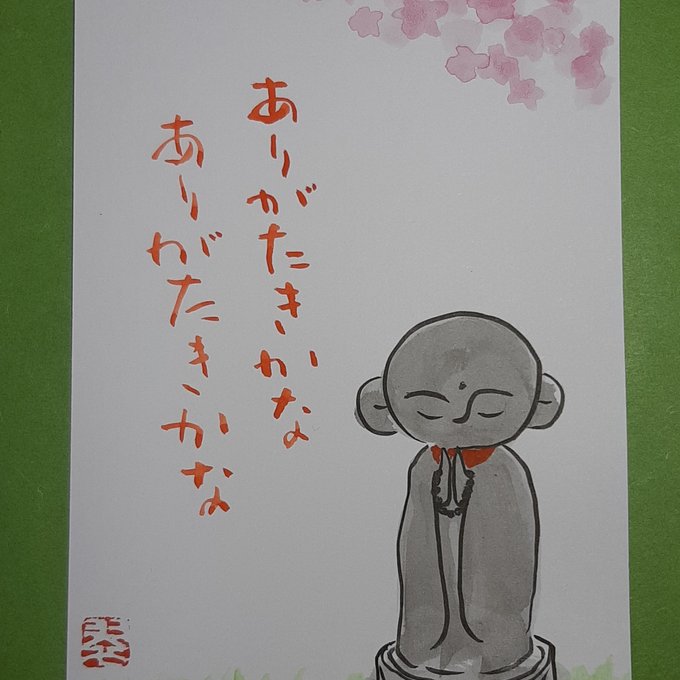 ありがたきかな
ありがたきかな